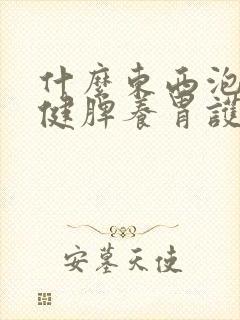 什麼東西泡
健脾養胃護
安墓天使